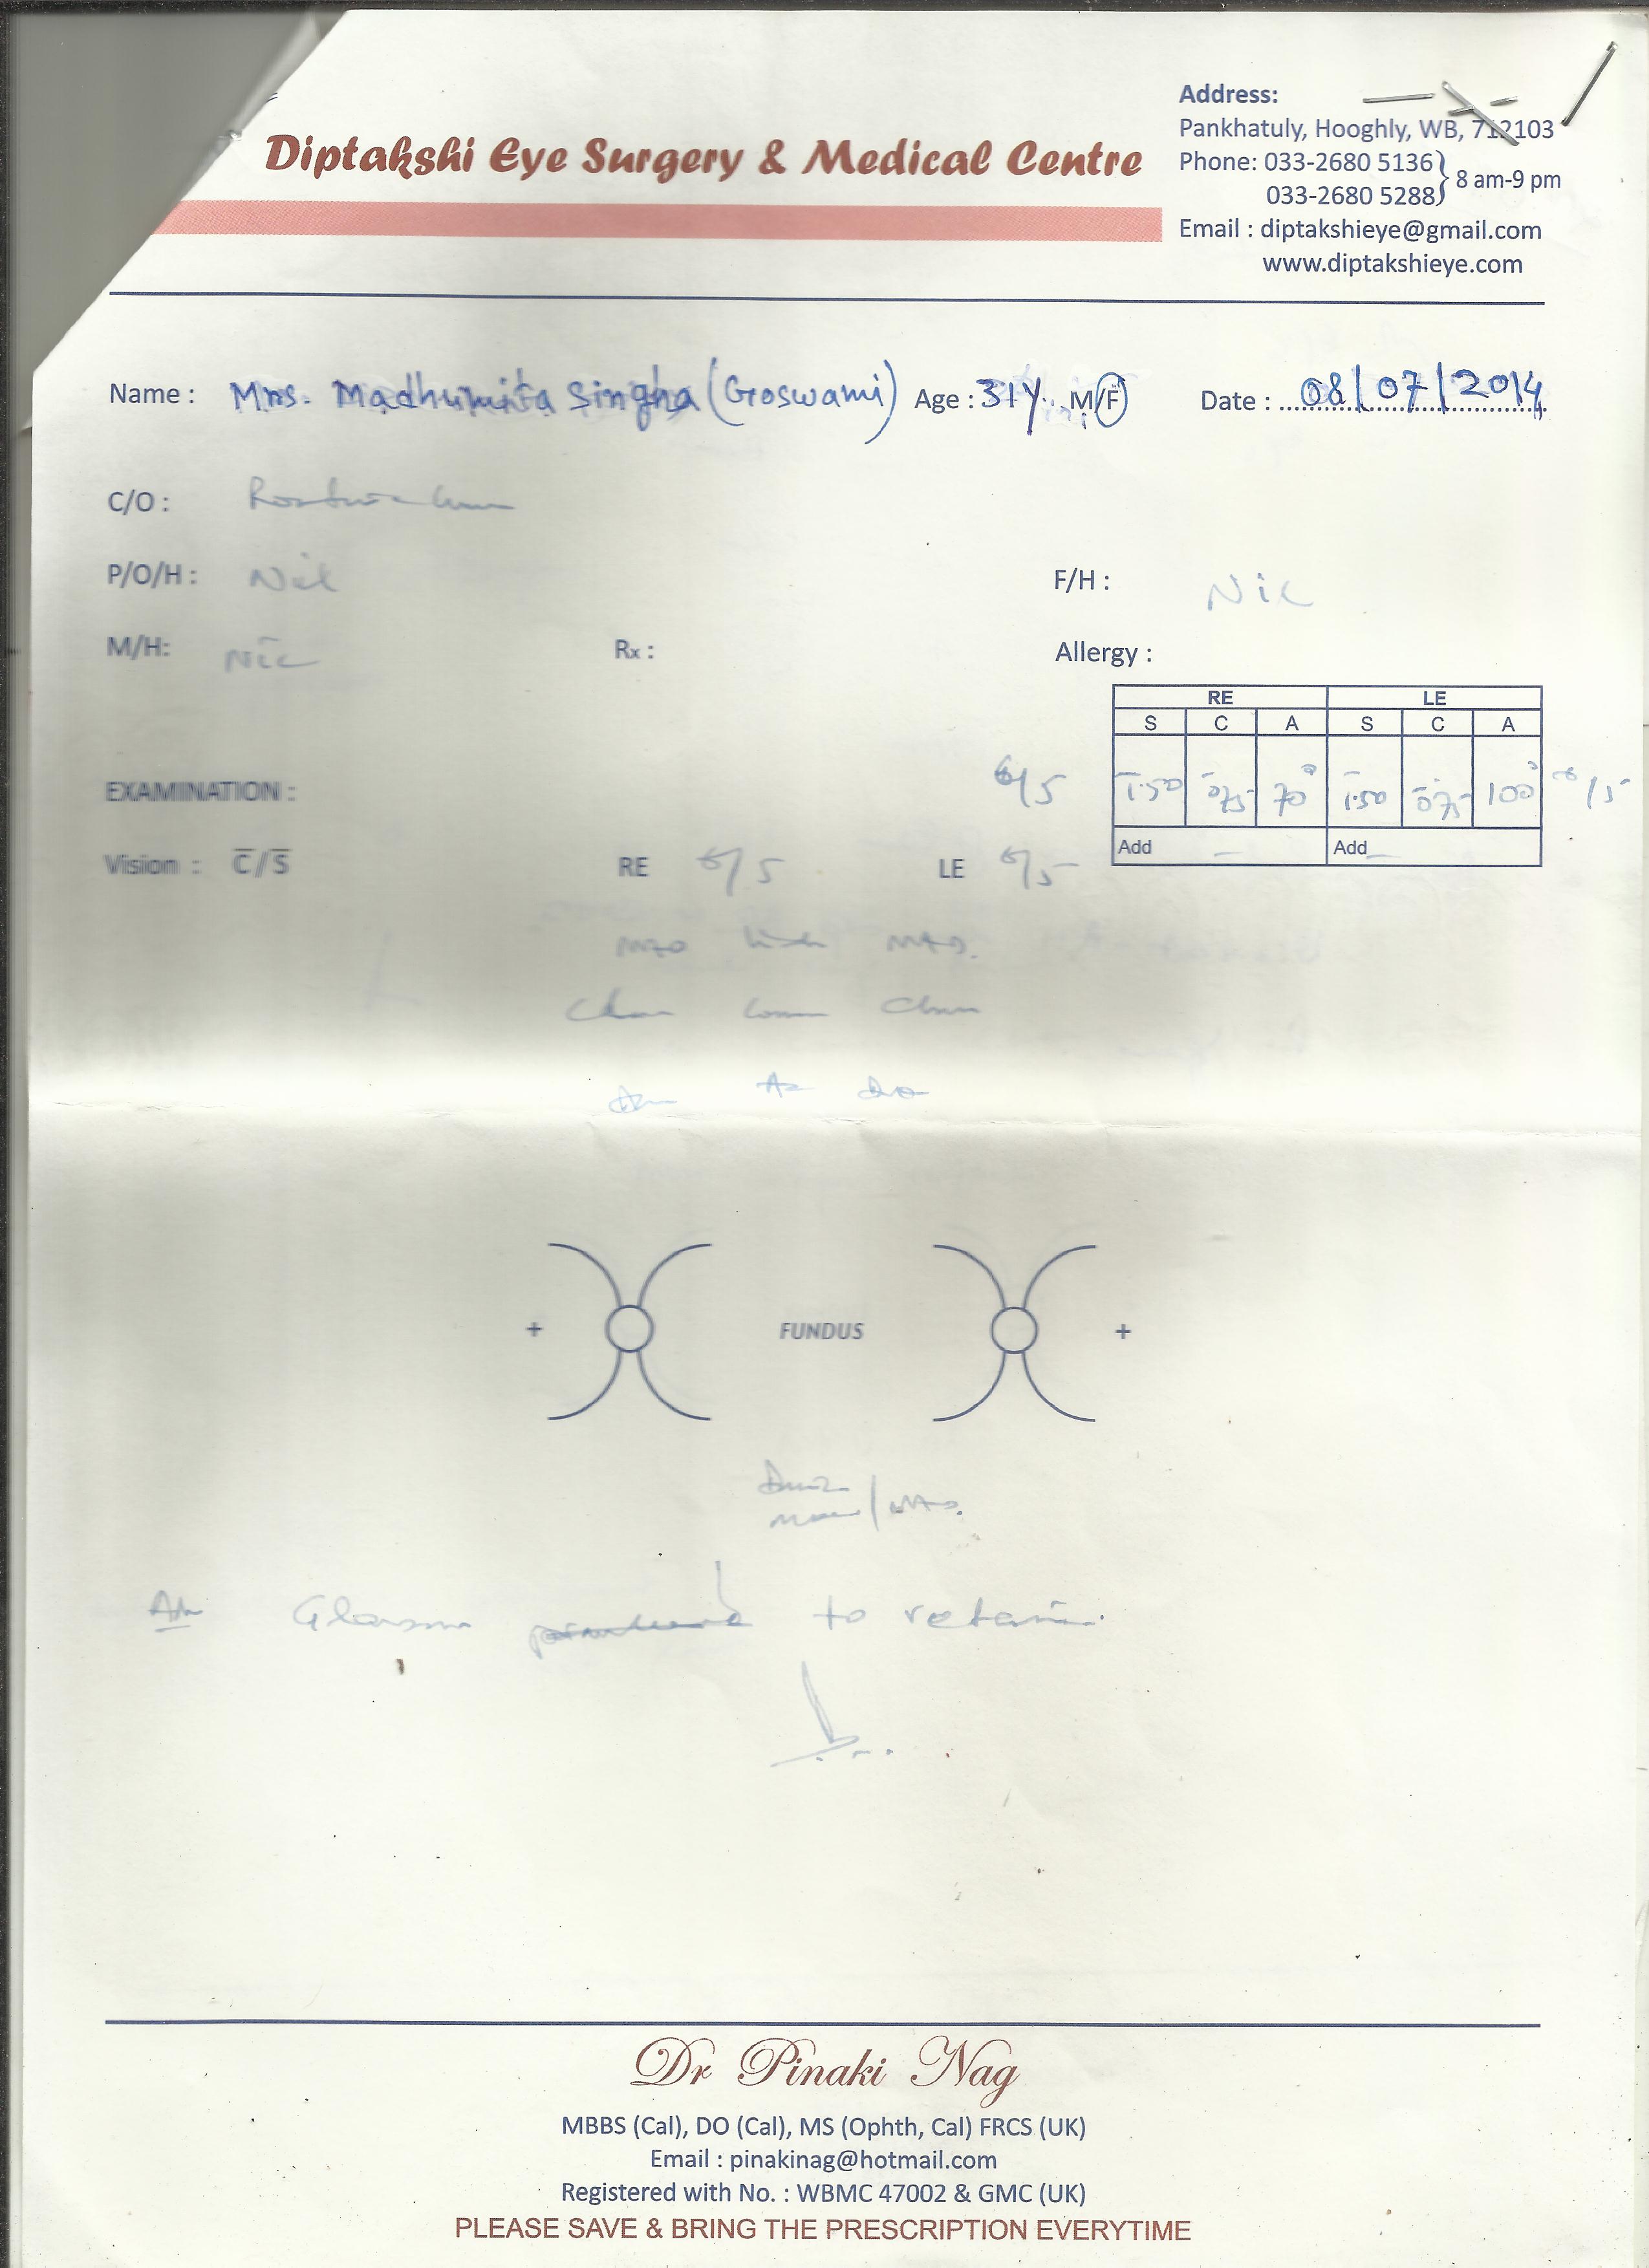 Diptakshi Eye Surgery & Medical Centre
Address:
Pankhatuly, Hooghly, WB, 712103
Phone: 033-2680 5136
033-2680 5288
8 am-9 pm
Email : diptakshieye@gmail.com
www.diptakshieye.com
Name : Mrs. Madhumita Singha (Goswami) Age : 31Y M/F Date : 08/07/2014
C/O :
P/O/H : Nil F/H : Nil
M/H: Nil Rx : Allergy :
RE LE
S C A S C A
EXAMINATION : 6/5 -1.50 -0.75 70° -1.50 -0.75 100° 6/5
Add - Add -
Vision : C̅/S̅ RE 6/5 LE 6/5
+ FUNDUS +
Glasses to retain.
Dr Pinaki Nag
MBBS (Cal), DO (Cal), MS (Ophth, Cal) FRCS (UK)
Email : pinakinag@hotmail.com
Registered with No. : WBMC 47002 & GMC (UK)
PLEASE SAVE & BRING THE PRESCRIPTION EVERYTIME